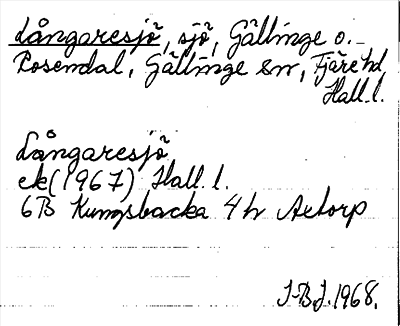 Långaresjö, sjö, Gällinge o.
Rosendal, Gällinge sn, Fjäre hd
Hall. l.
Långaresjö
ek (1967) Hall. l.
6B Kungsbacka 4h Axtorp
I-B J. 1968.